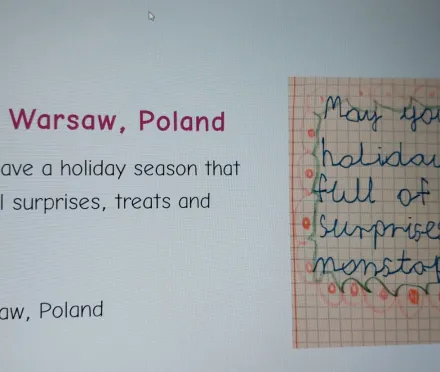 Warsaw, Poland
ave a holiday season that
l surprises, treats and
aw, Poland
May you
holiday
full of
surprise
nonstop